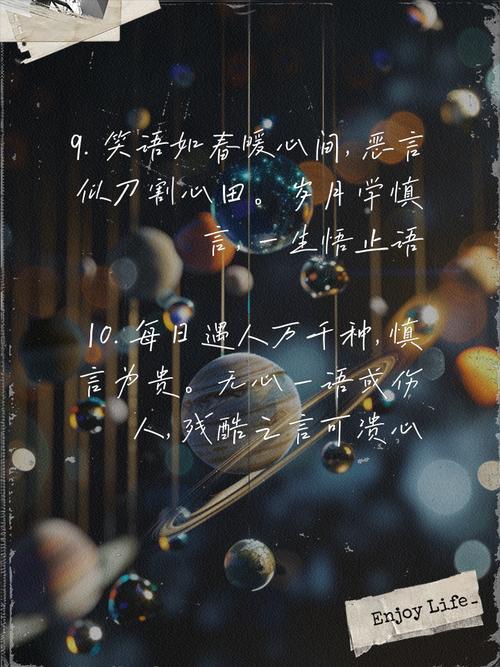 9. 笑语如春暖心间, 恶言
似刀割心田。岁月学慎
言, 一生悟止语
10. 每日遇人万千种, 慎
言为贵。无心一语或伤
人, 残酷之言可溃心
Enjoy Life.